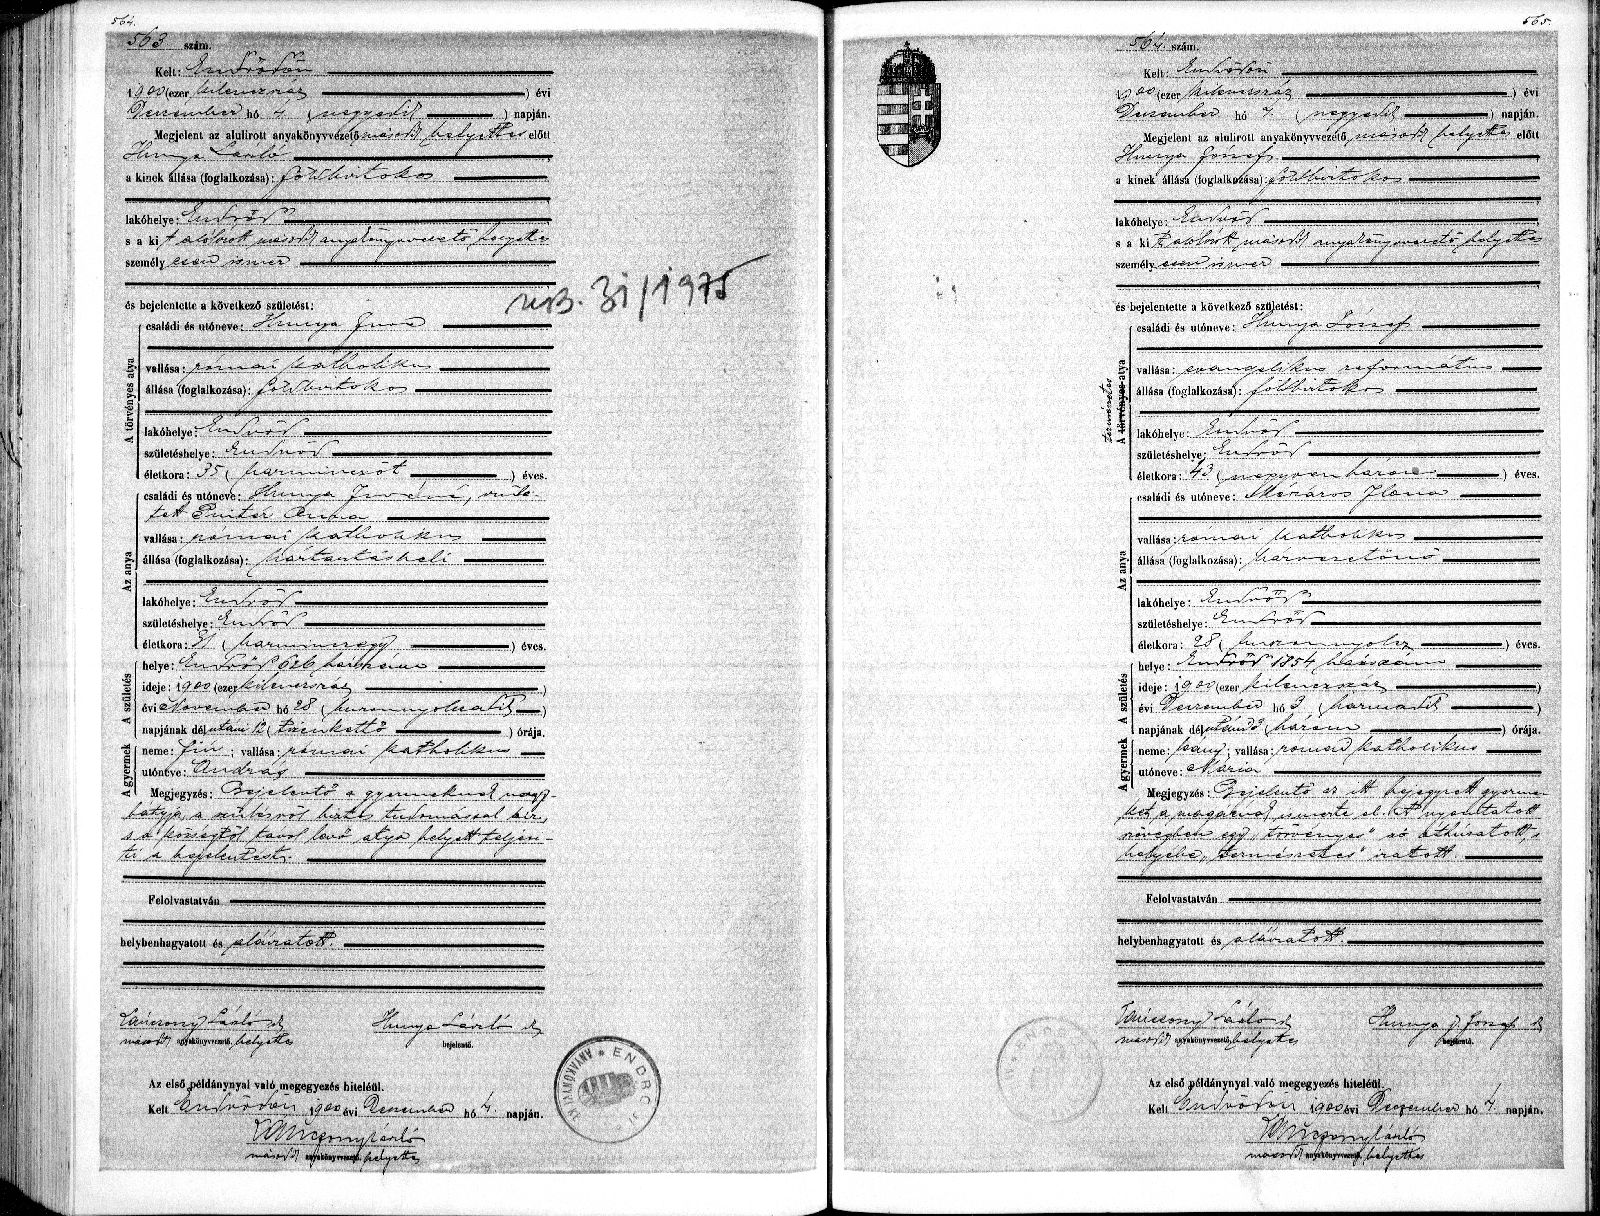 564.
563 szám.
Kelt: Endrődön
1900 (ezer kilencszáz) évi
December hó 4 (negyedik) napján.
Megjelent az alulirott anyakönyvvezető másod helyettes előtt
Hunya László
a kinek állása (foglalkozása): földbirtokos
lakóhelye: Endrőd
s a kit alólírott másod anyakönyvvezető helyettes
személyesen ismer
és bejelentette a következő születést:
A törvényes atya
családi és utóneve: Hunya
vallása: római katholikus
állása (foglalkozása): földbirtokos
lakóhelye: Endrőd
születéshelye: Endrőd
életkora: 35 (harminczöt) éves.
Az anya
családi és utóneve: Hunya szüle-
tett Anna
vallása: római katholikus
állása (foglalkozása): háztartásbeli
lakóhelye: Endrőd
születéshelye: Endrőd
életkora: 31 (harminczegy) éves.
A születés
helye: Endrőd 626 házszám
ideje: 1900 (ezer kilencszáz)
évi November hó 28 (huszonnyolczadik)
napjának délutáni 12 (tizenkettő) órája.
A gyermek
neme: fiu; vallása: római katholikus
utóneve: András
Megjegyzés: Bejelentő a gyermeknek nagy-
bátyja, a születésről biztos tudomással bír,
s a községtől távol levő atya helyett teljesí-
ti a bejelentést.
Felolvastatván
helybenhagyatott és aláiratott.
Tanczony László sk
másod anyakönyvvezető helyettes
Hunya László sk
bejelentő.
Az első példánynyal való megegyezés hiteléül.
Kelt Endrődön 1900 évi December hó 4. napján.
Tanczony László
másod anyakönyvvezető helyettes
31/1975
565.
564. szám.
Kelt: Endrődön
1900 (ezer kilencszáz) évi
December hó 4 (negyedik) napján.
Megjelent az alulirott anyakönyvvezető másod helyettes előtt
Hunya József
a kinek állása (foglalkozása): földbirtokos
lakóhelye: Endrőd
s a kit alólírott másod anyakönyvvezető helyettes
személyesen ismer
és bejelentette a következő születést:
A törvényes atya
természetes
családi és utóneve: Hunya József
vallása: evangelikus református
állása (foglalkozása): földbirtokos
lakóhelye: Endrőd
születéshelye: Endrőd
életkora: 43 (negyvenhárom) éves.
Az anya
családi és utóneve: Mészáros Ilona
vallása: római katholikus
állása (foglalkozása): házvezetőnő
lakóhelye: Endrőd
születéshelye: Endrőd
életkora: 28 (huszonnyolcz) éves.
A születés
helye: Endrőd 1854 házszám
ideje: 1900 (ezer kilencszáz)
évi December hó 3 (harmadik)
napjának délutáni 3 (három) órája.
A gyermek
neme: leány; vallása: római katholikus
utóneve: Mária
Megjegyzés: Bejelentő ez itt bejegyzett gyerme-
ket a magáénak ismerte el. A nyomtatott
szövegben egy "törvényes" szó áthúzatott, s
helyébe "természetes" iratott.
Felolvastatván
helybenhagyatott és aláiratott.
Tanczony László sk
másod anyakönyvvezető helyettes
Hunya J József sk
bejelentő.
Az első példánynyal való megegyezés hiteléül.
Kelt Endrődön 1900 évi December hó 4. napján.
Tanczony László
másod anyakönyvvezető helyettes